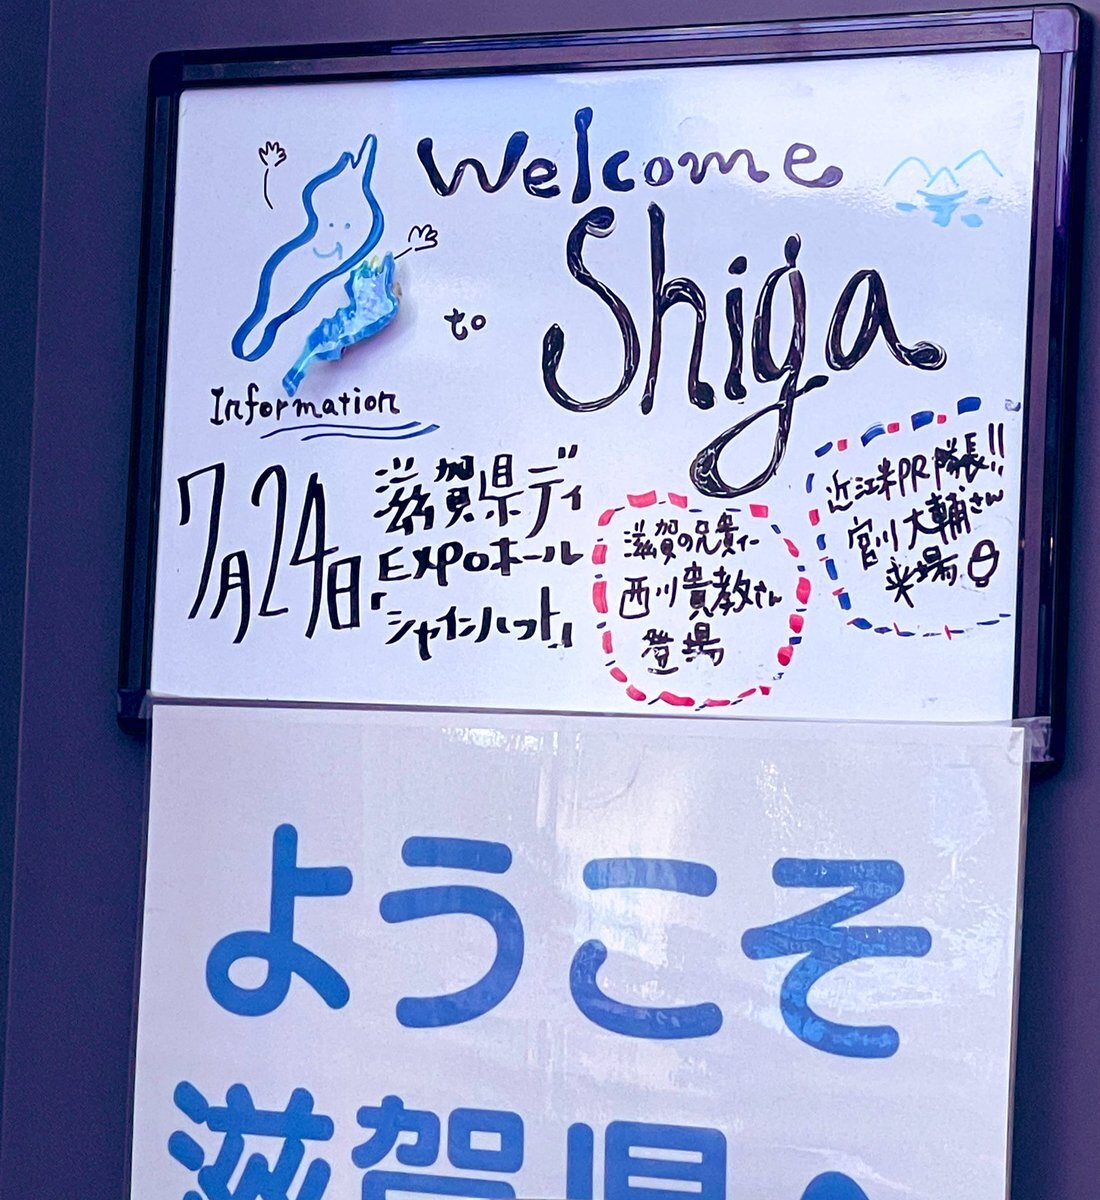 Welcome
to Shiga
Information
7月24日
滋賀県ディ
EXPOホール
「シャインハット」
滋賀の兄貴ィー
西川貴教さん
登場
近江米PR隊長!!
宮川大輔さん
来場
ようこそ
滋賀県へ